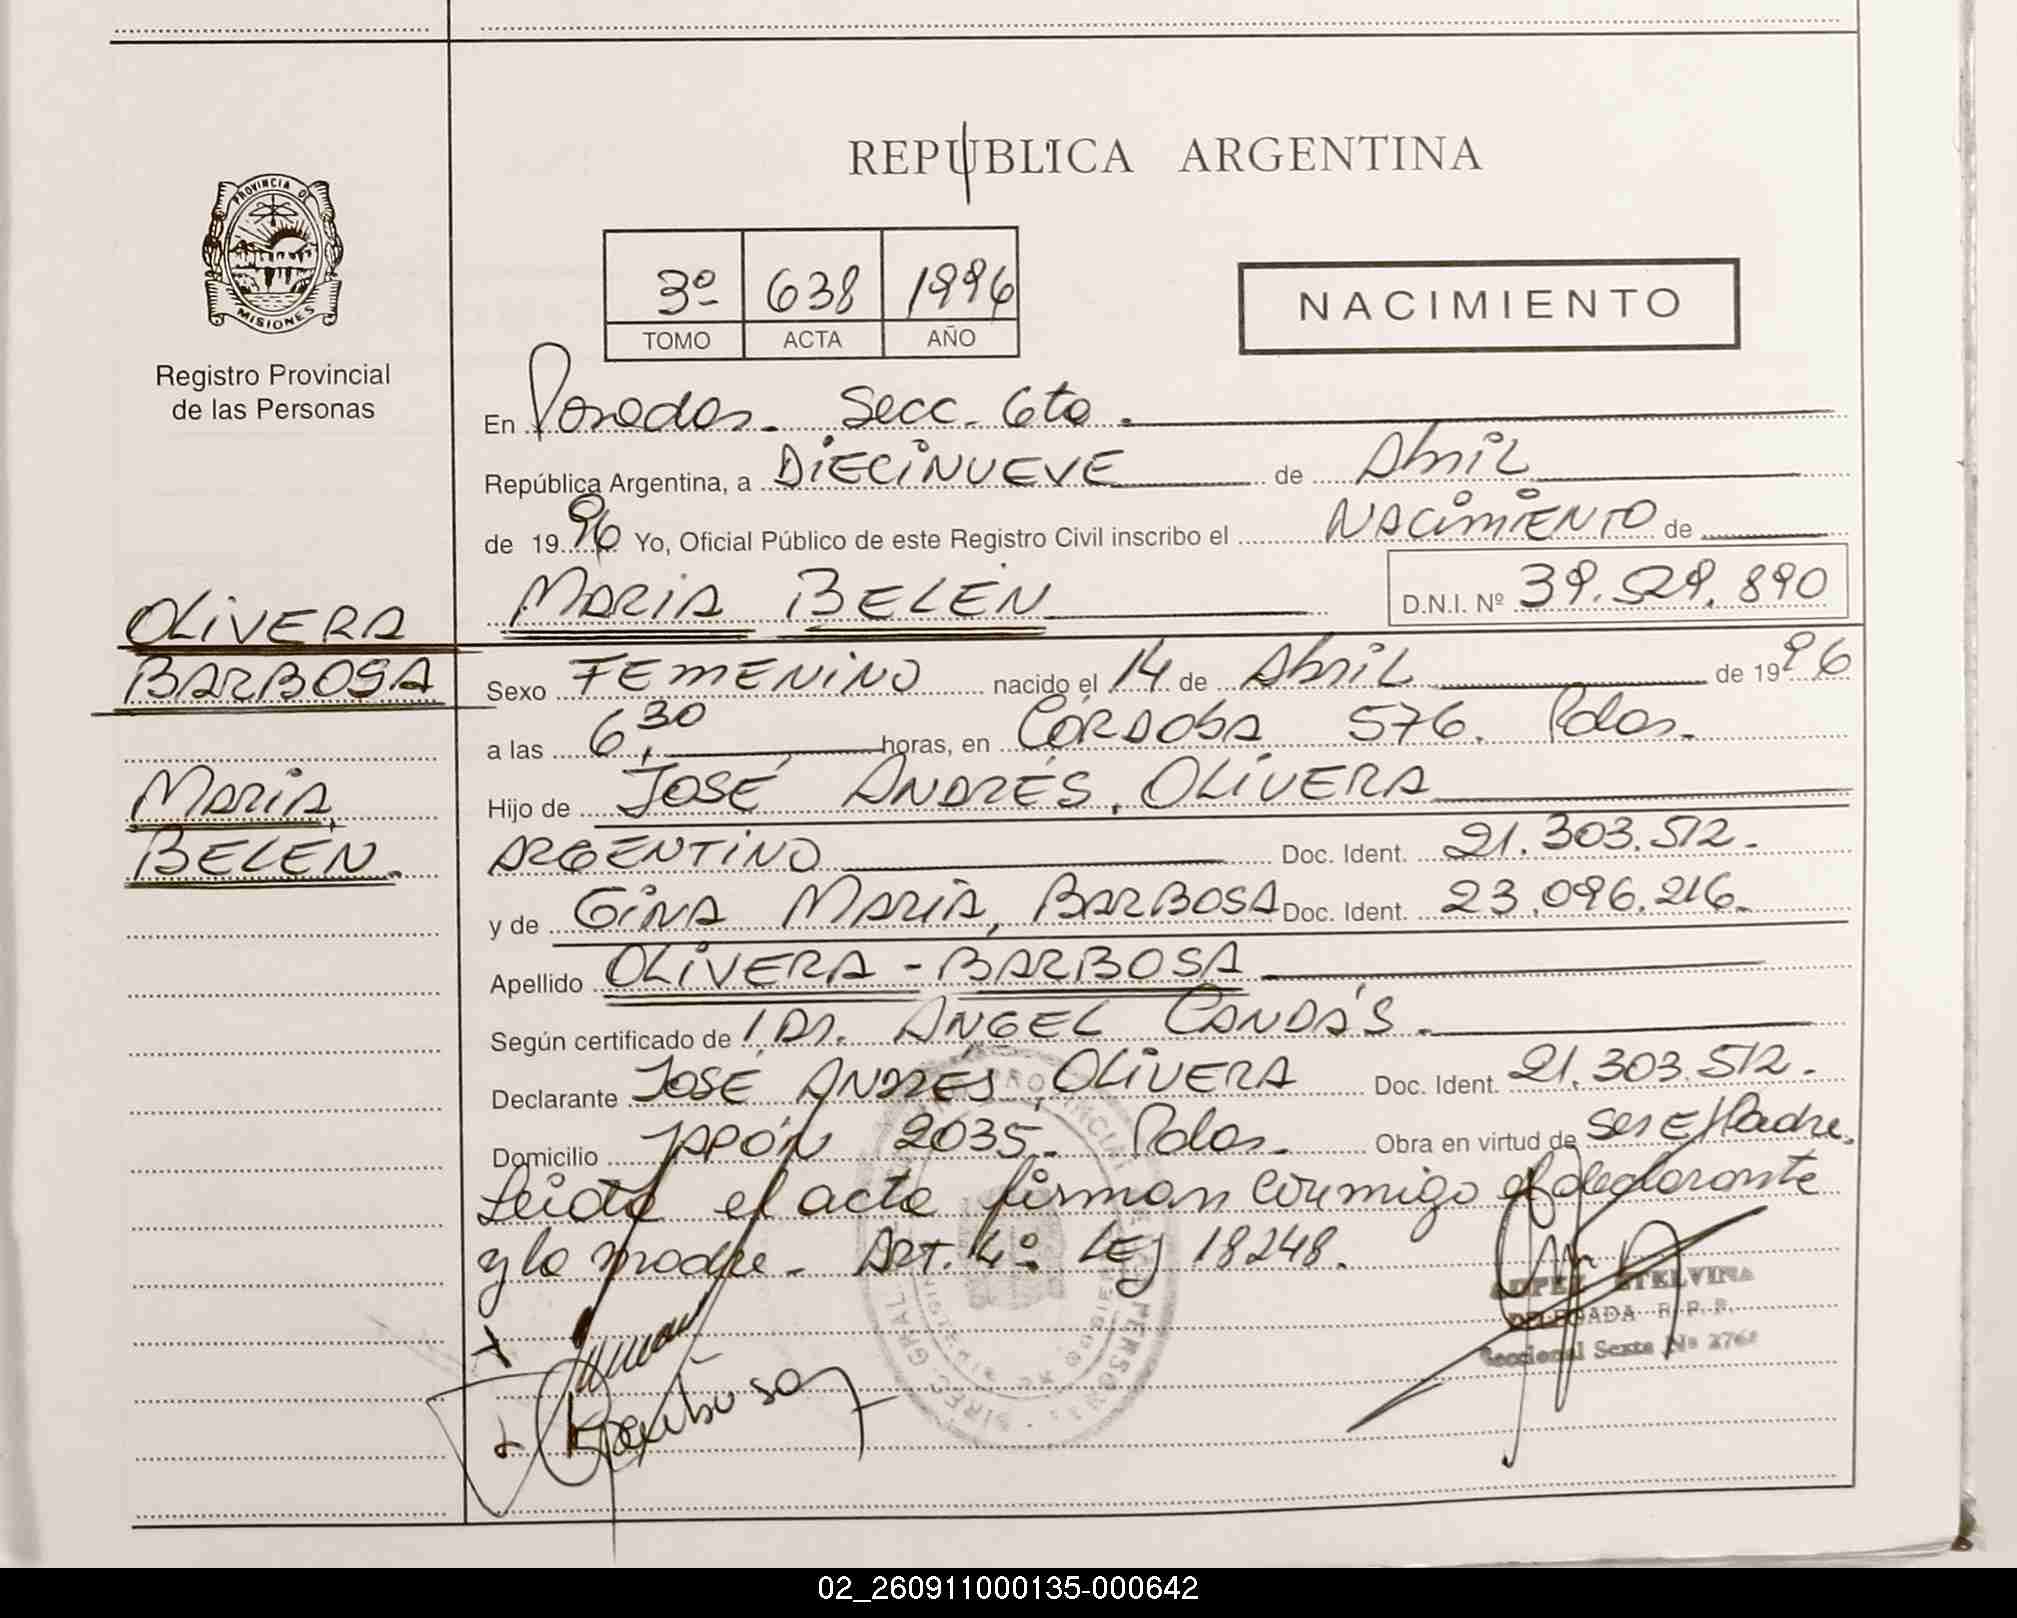 REPUBLICA ARGENTINA
PROVINCIA DE
MISIONES
Registro Provincial
de las Personas
3º 638 1996
TOMO ACTA AÑO
NACIMIENTO
En Posadas. Secc. 6ta.
República Argentina, a DIECINUEVE de Abril
de 1996 Yo, Oficial Público de este Registro Civil inscribo el NACIMIENTO de
MARIA BELÉN D.N.I. Nº 39.529.890
OLIVERA
BARBOSA
MARIA
BELÉN.
Sexo FEMENINO nacido el 14 de Abril de 1996
a las 6,30 horas, en CÓRDOBA 576. Pdas.
Hijo de JOSÉ ANDRÉS, OLIVERA
ARGENTINO Doc. Ident. 21.303.512.
y de GINA MARIA, BARBOSA Doc. Ident. 23.096.216.
Apellido OLIVERA - BARBOSA
Según certificado de Dr. ANGEL CANDÁS.
Declarante JOSÉ ANDRÉS, OLIVERA Doc. Ident. 21.303.512.
Domicilio JAPÓN 2035. Pdas. Obra en virtud de Ser El Padre.
Leida el acta firman conmigo el declarante
y la madre. ART. 4º LEY 18248.
LOPEZ ETELVINA
DELEGADA R. P. P.
Seccional Sexta Nº
Barbosa
02_260911000135-000642